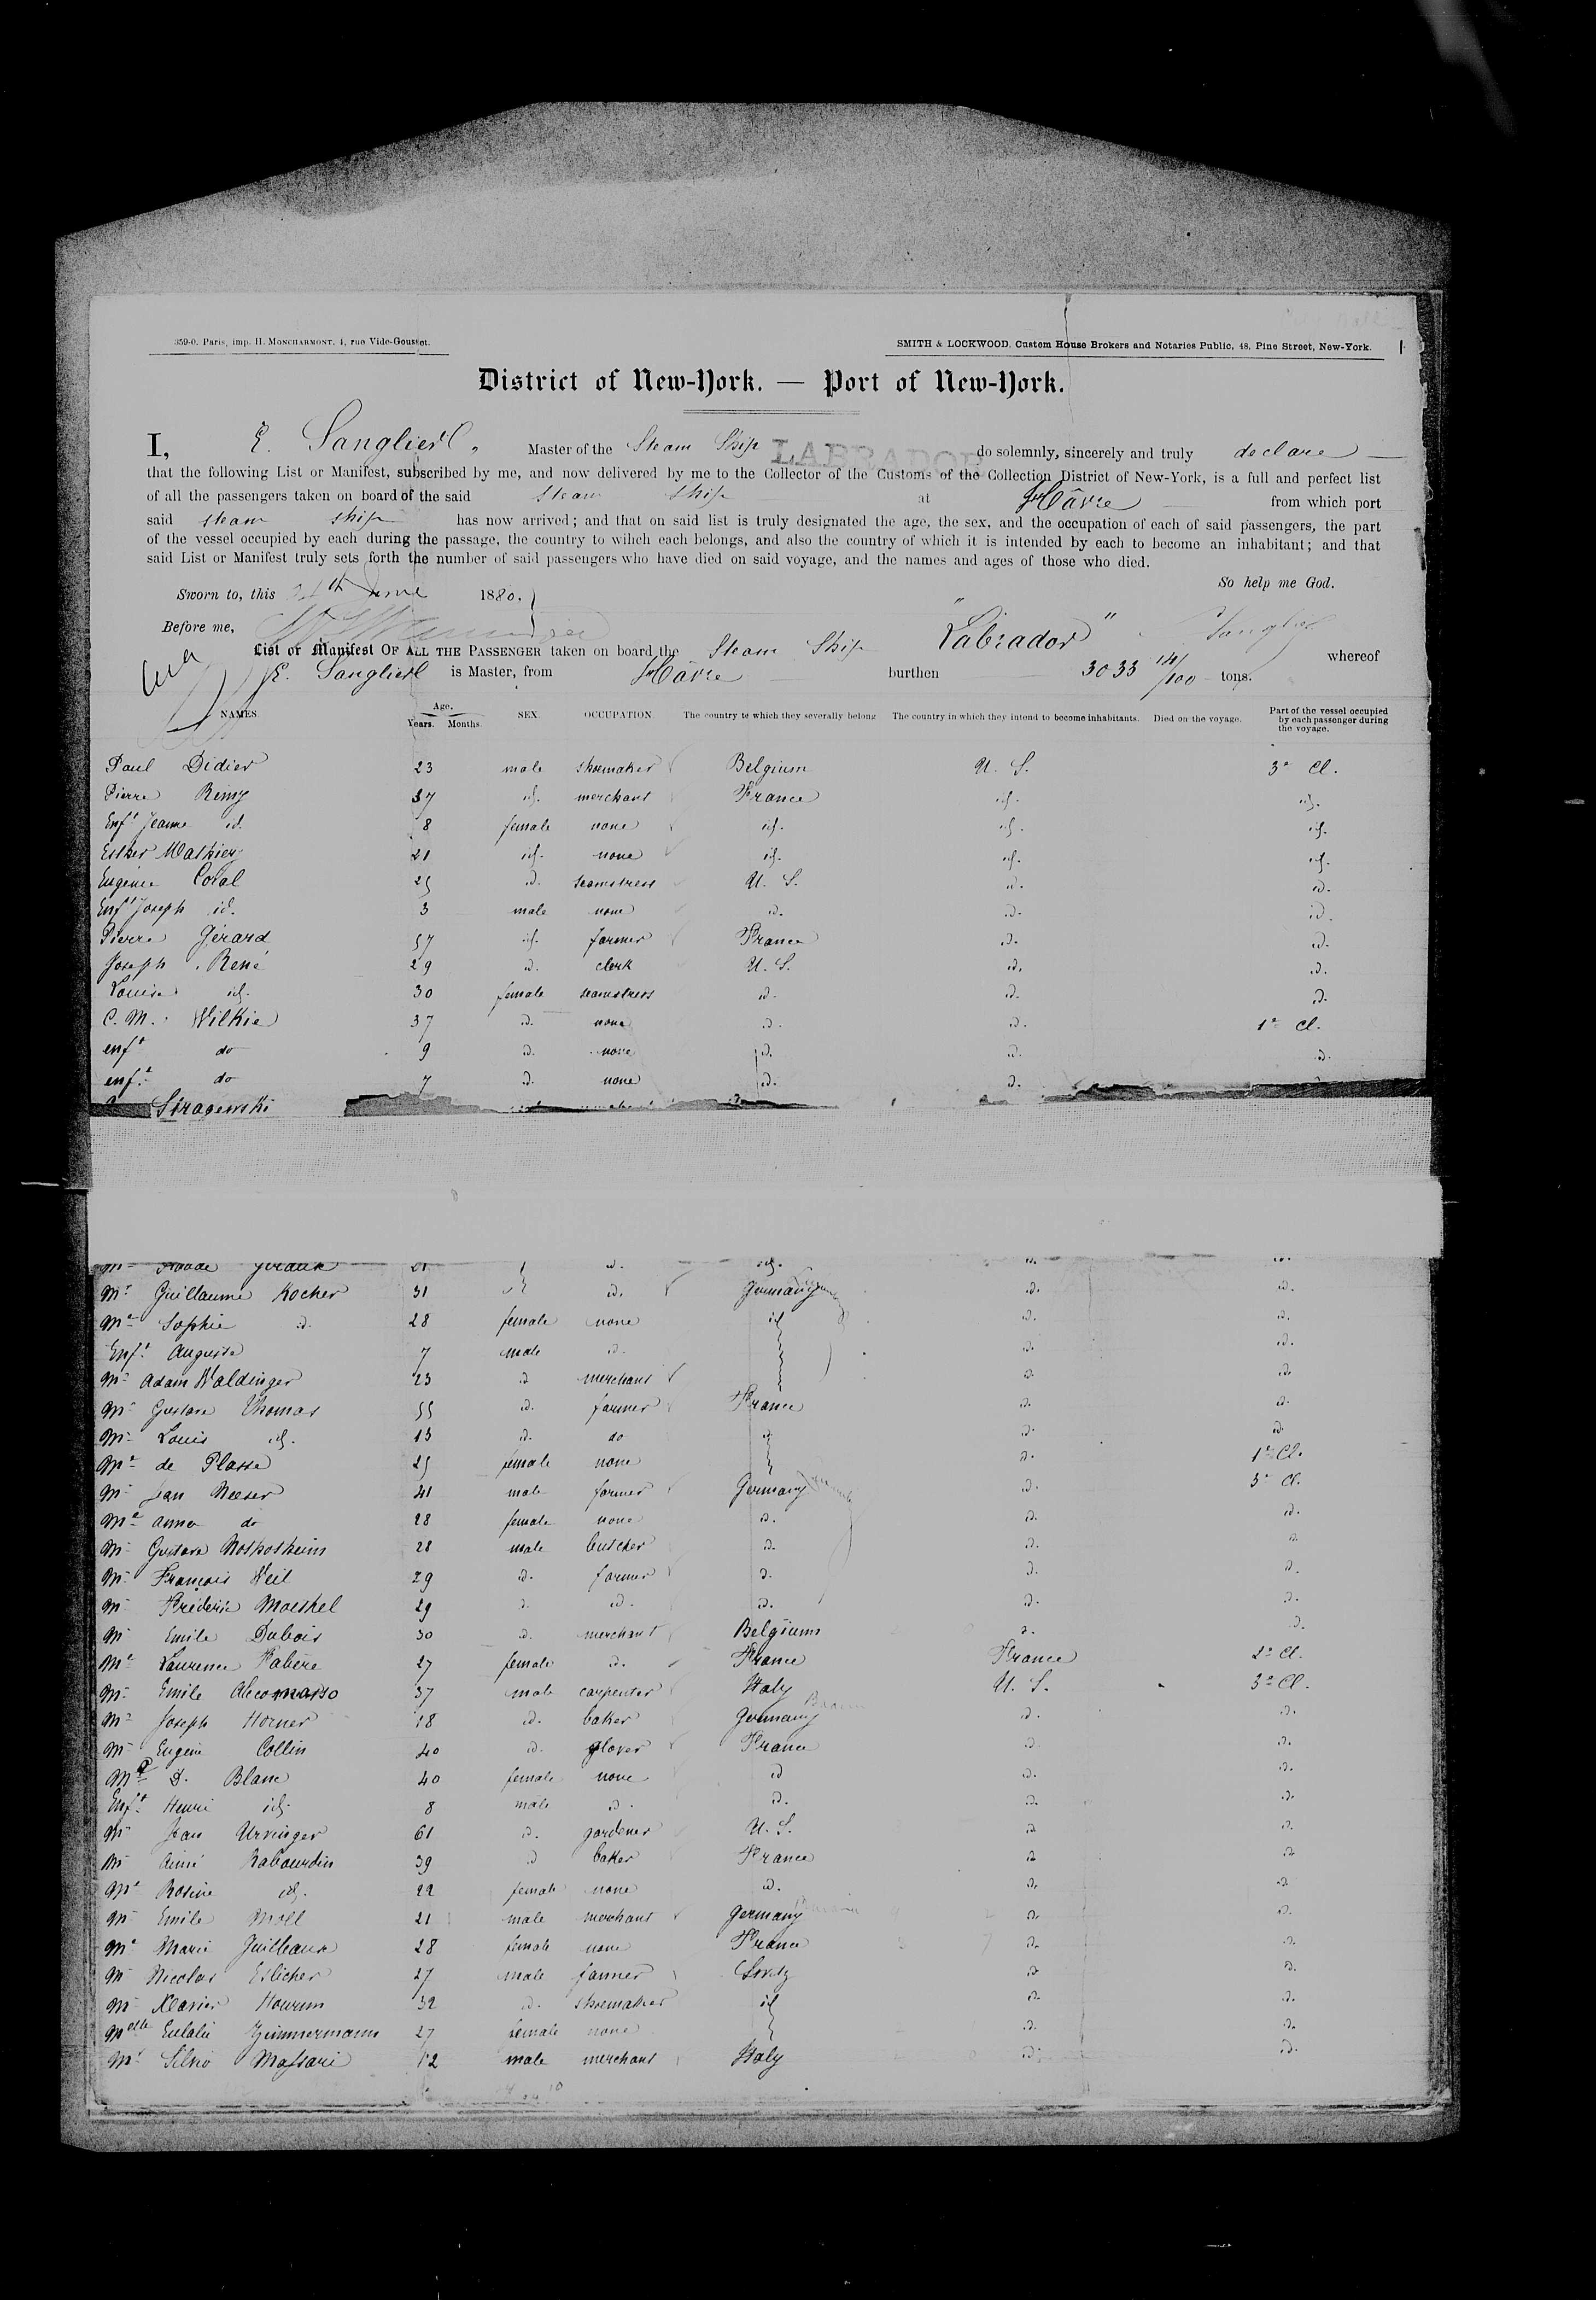 359-0. Paris, imp. H. MONCHARMONT. 1, rue Vide-Gousset.
SMITH & LOCKWOOD, Custom House Brokers and Notaries Public, 48, Pine Street, New-York.
District of New-York. — Port of New-York.
I, E. Sanglier Master of the Steam Ship LABRADOR do solemnly, sincerely and truly declare
that the following List or Manifest, subscribed by me, and now delivered by me to the Collector of the Customs of the Collection District of New-York, is a full and perfect list
of all the passengers taken on board of the said steam ship at Hâvre from which port
said steam ship has now arrived; and that on said list is truly designated the age, the sex, and the occupation of each of said passengers, the part
of the vessel occupied by each during the passage, the country to wihch each belongs, and also the country of which it is intended by each to become an inhabitant; and that
said List or Manifest truly sets forth the number of said passengers who have died on said voyage, and the names and ages of those who died.
So help me God.
Sworn to, this June 1880.
Before me,
List or Manifest OF ALL THE PASSENGER taken on board the Steam Ship "Labrador" whereof
E. Sanglier is Master, from Hâvre burthen 3033 14/100 tons.
NAMES. Age. Years. Months. SEX. OCCUPATION The country to which they severally belong The country in which they intend to become inhabitants. Died on the voyage. Part of the vessel occupied by each passenger during the voyage.
Paul Didier 23 male shoemaker Belgium U. S. 3e Cl.
Pierre Remy 37 id. merchant France id. id.
Enft Jeanne id. 8 female none id. id. id.
Esther Mathieu 21 id. none id. id. id.
Eugénie Coral 25 id. seamstress U. S. id. id.
Enft Joseph id. 3 male none id. id. id.
Pierre Gérard 57 id. farmer France id. id.
Joseph René 29 id. clerk U. S. id. id.
Louise id. 30 female seamstress id. id. id.
C. M. Wilkie 37 id. none id. id. 1e Cl.
enft do 9 id. none id. id. id.
enft do 7 id. none id. id.
Stragewski
21 id. id. id. id.
Mr Guillaume Kocher 31 id. Germany id. id.
Me Sophie id. 28 female none id id. id.
Enft Auguste 7 male id. id. id.
Mr Adam Waldinger 23 id merchant id id.
Mr Gustave Thomas 55 id. farmer France id. id.
Mr Louis id. 13 id. do id id. id.
Me de Plasse 25 female none id. 1e Cl.
Mr Jean Meeser 41 male farmer Germany id. 3e Cl.
Me Anna do 28 female none id. id. id.
Mr Gustave Nosposheim 28 male butcher id. id. id
Mr François Weil 29 id. farmer id. id. id.
Mr Fréderic Moeskel 29 id. id. id. id. id.
Mr Emile Dubois 30 id. merchant Belgium id. id.
Me Laurence Fabère 27 female id. France France 2e Cl.
Mr Emile 37 male carpenter Italy U. S. 3e Cl.
Mr Joseph Horner 18 id. baker Germany id. id.
Mr Eugene Collin 40 id. glover France id. id.
Me D. Blanc 40 female none id id. id.
Enft Henri id. 8 male id. id. id. id.
Mr Jean Urvinger 61 id. gardener U. S. id id.
Mr Aimé Rabourdin 39 id baker France id id
Me Rosine id. 22 female none id. id. id
Mr Emile Moll 21 male merchant Germany id. id.
Me Marie Guilleaux 28 female none France id. id.
Mr Nicolas Erlicher 27 male farmer Switz id id.
Mr Xavier Hourun 32 id. shoemaker id id. id.
Melle Eulalie Zimmermann 27 female none id. id.
Mr Silvio Massari 12 male merchant Italy id. id.